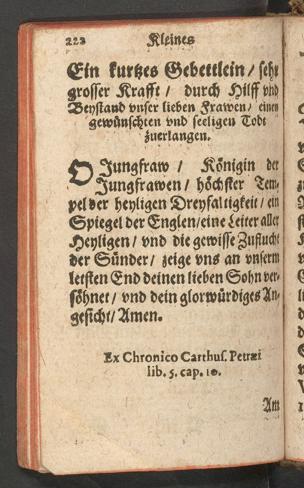 222 Kleines
Ein kurtzes Gebettlein / sehr
grosser Krafft / durch Hilff vnd
Beystand vnser lieben Frawen / einen
gewünschten vnd seeligen Todt
zuerlangen.
O Jungfraw / Königin der
Jungfrawen / höchster Tem-
pel der heyligen Dreyfaltigkeit / ein
Spiegel der Englen / eine Leiter aller
Heyligen / vnd die gewisse Zuflucht
der Sünder / zeige vns an vnserm
letsten End deinen lieben Sohn ver-
söhnet / vnd dein glorwürdiges An-
gesicht / Amen.
Ex Chronico Carthus. Petræi
lib. 5. cap. 10.
Am